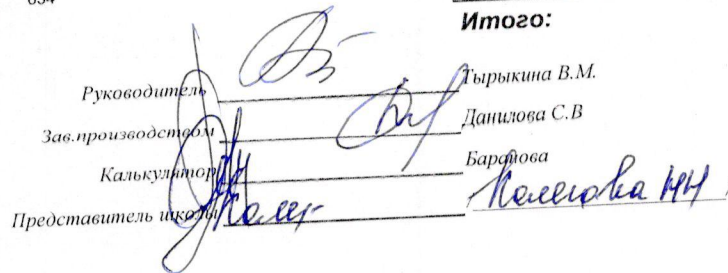 Итого:
Руководитель Тырыкина В.М.
Зав.производством Данилова С.В
Калькулятор Баранова
Представитель школы Колегова НН